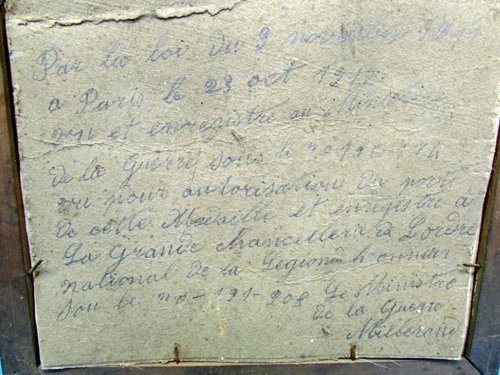 Par la loi du 9 novembre 1911
a Paris le 23 oct 1912
vu et enregistre au Ministere
de la Guerre sous le no
vu pour autorisation du port
de cette Medaille et enregistre a
La Grande chancellerie a Lordre
national de la Legion d honneur
sou le no - 191 - 208 Le Ministre
de la Guerre
Millerand